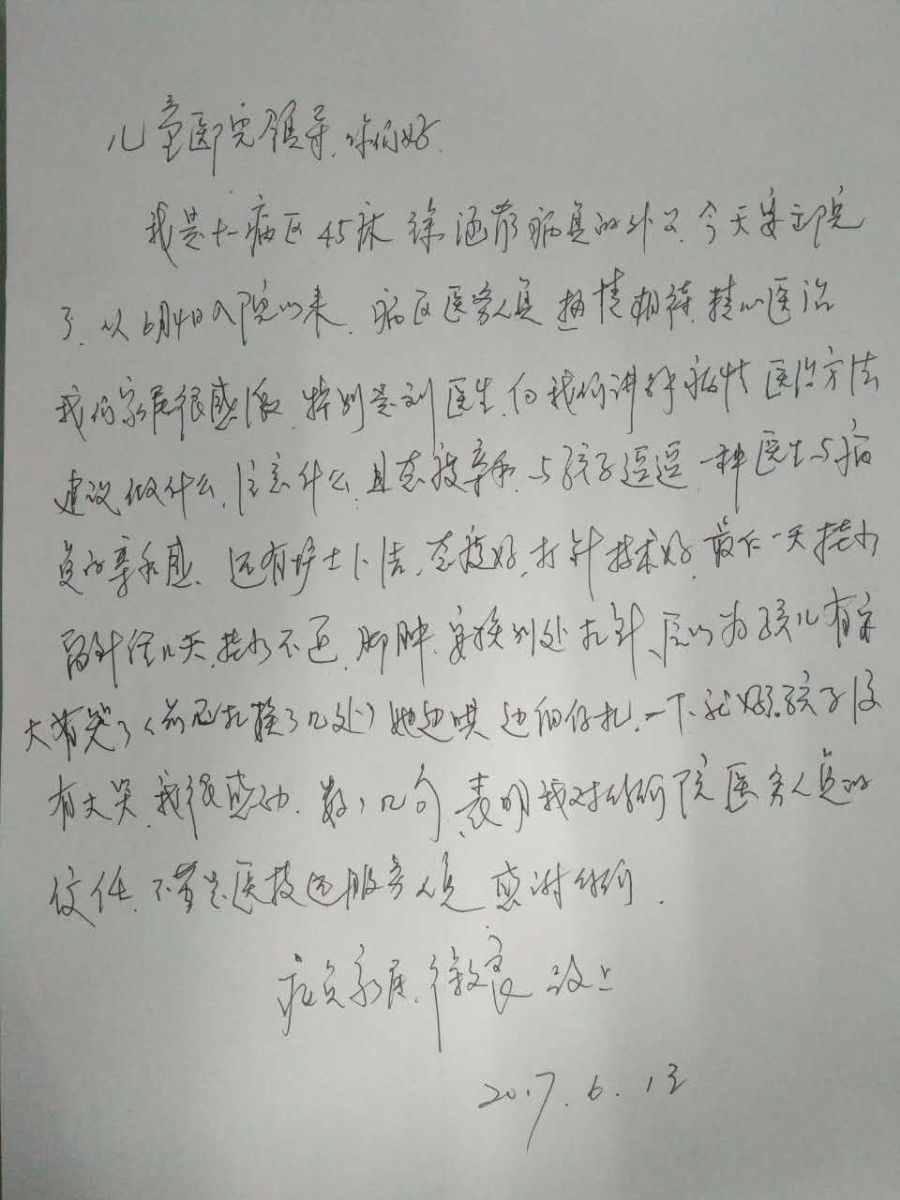 儿童医院领导，你们好．
我是十一病区45床徐涵 病员的外公．今天要出院
了，从6月4日入院以来，病区医务人员热情相待，精心医治
我们家属很感激，特别是刘医生，向我们讲解病情医治方法
建议做什么，注意什么，且态度亲和，与孩子逗逗，一种医生与病
员的亲和感、还有护士卜洁，态度好，打针技术好，最后一天挂水
留针经几天，挂水不进，脚肿，要换别处扎针、原以为孩儿有
大 哭了（前 扎换了几处）她边哄边细仔扎，一下就好，孩子没
有大哭，我很感动．数 几句，表明我对你们院医务人员的
信任，不管是医技还服务人员 感谢你们．
病员家属，徐 良 敬上
2017．6．13